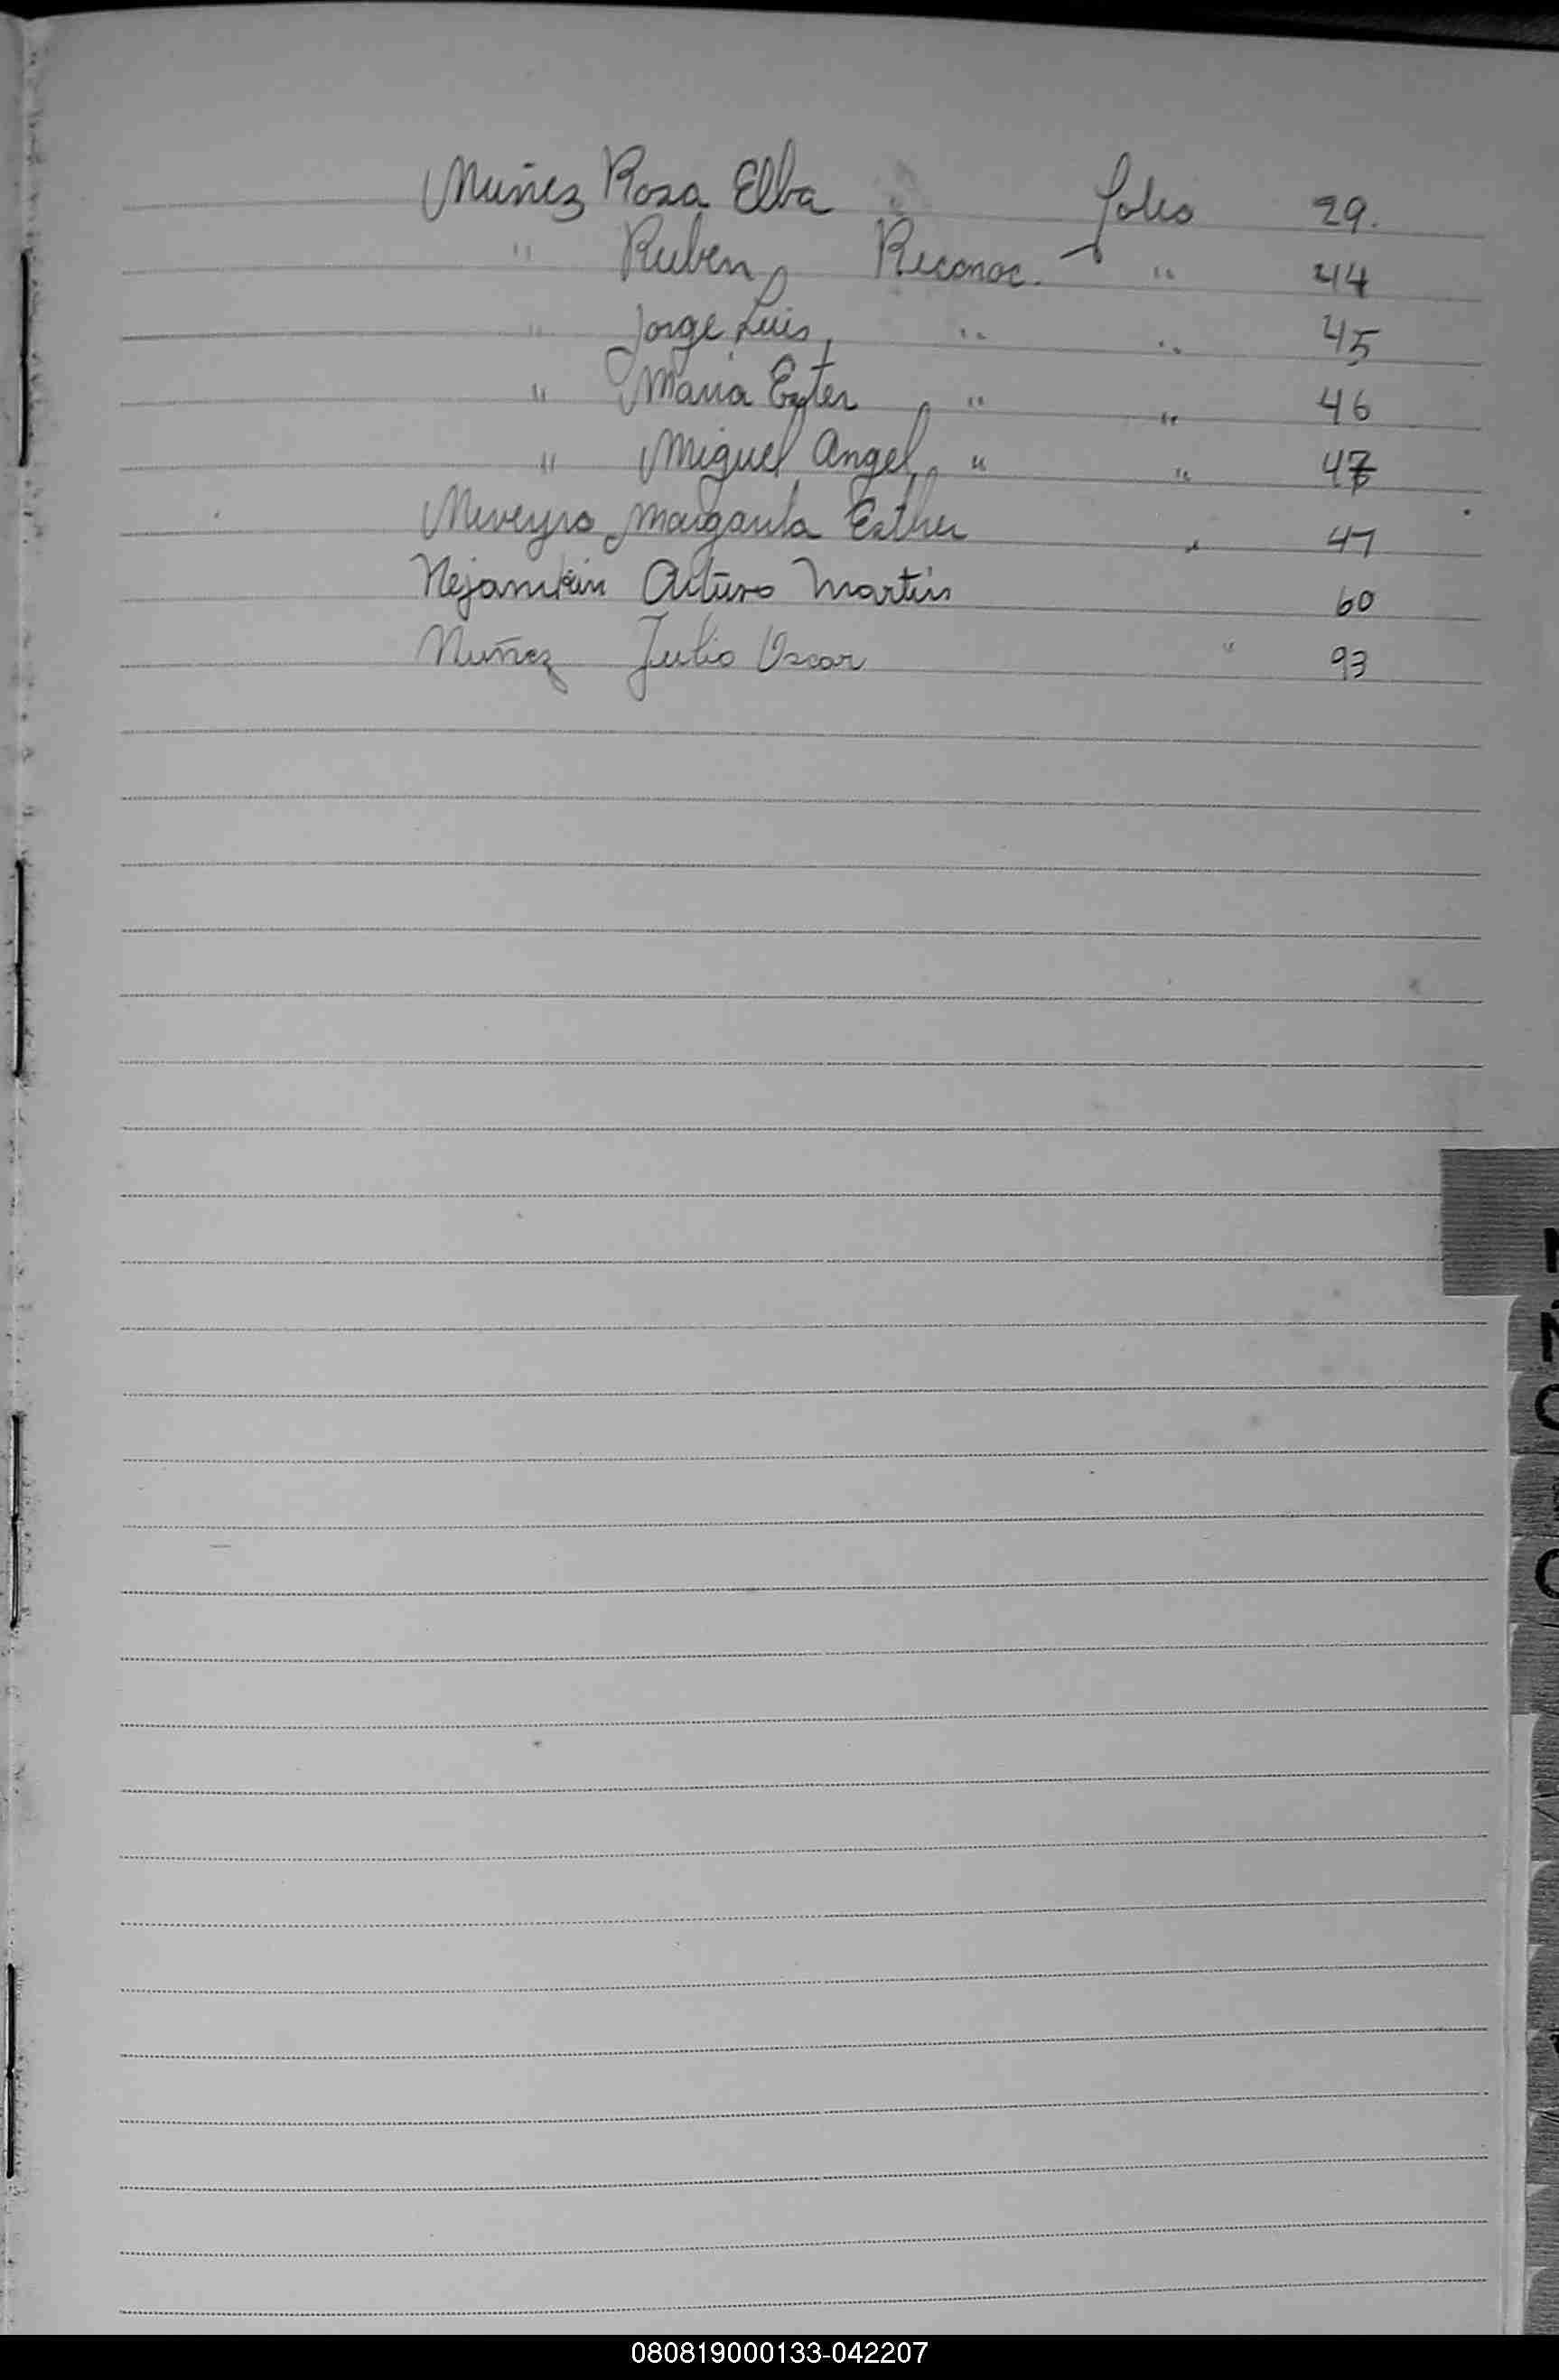 Nuñez Rosa Elba Folio 29.
" Ruben, Reconoc. " 44
" Jorge Luis, " " 45
" Maria Ester " " 46
" Miguel Angel, " " 47
Neveyro Margarita Esther " 47
Nejamkin Arturo Martin 60
Nuñez Julio Oscar " 93
N
Ñ
O
080819000133-042207